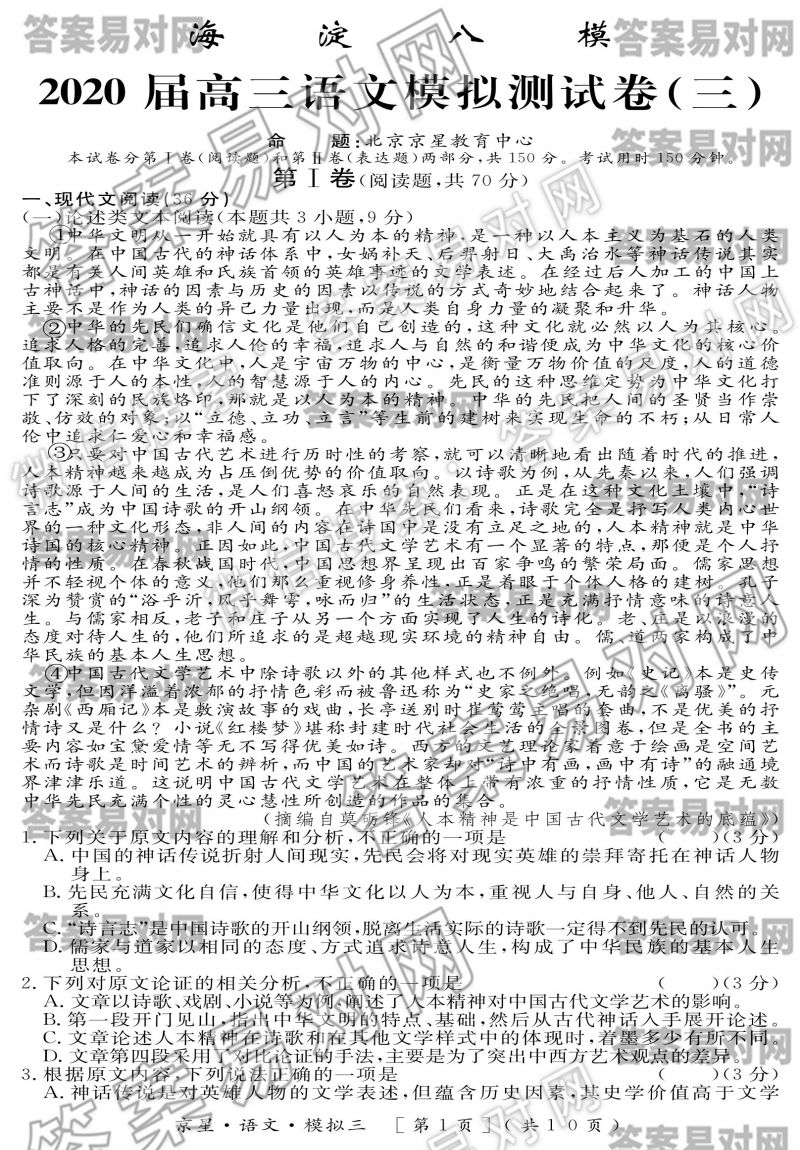 海淀八模
2020 届高三语文模拟测试卷(三)
命 题:北京京星教育中心
本试卷分第Ⅰ卷(阅读题)和第Ⅱ卷(表达题)两部分,共 150 分。考试用时 150 分钟。
第Ⅰ卷(阅读题,共 70 分)
一、现代文阅读(36 分)
(一)论述类文本阅读(本题共 3 小题,9 分)
①中华文明从一开始就具有以人为本的精神,是一种以人本主义为基石的人类
文明。在中国古代的神话体系中,女娲补天、后羿射日、大禹治水等神话传说其实
都是有关人间英雄和民族首领的英雄事迹的文学表述。在经过后人加工的中国上
古神话中,神话的因素与历史的因素以传说的方式奇妙地结合起来了。神话人物
主要不是作为人类的异己力量出现,而是人类自身力量的凝聚和升华。
②中华的先民们确信文化是他们自己创造的,这种文化就必然以人为其核心。
追求人格的完善,追求人伦的幸福,追求人与自然的和谐便成为中华文化的核心价
值取向。在中华文化中,人是宇宙万物的中心,是衡量万物价值的尺度,人的道德
准则源于人的本性,人的智慧源于人的内心。先民的这种思维定势为中华文化打
下了深刻的民族烙印,那就是以人为本的精神。中华的先民把人间的圣贤当作崇
敬、仿效的对象;以“立德、立功、立言”等生前的建树来实现生命的不朽;从日常人
伦中追求仁爱心和幸福感。
③只要对中国古代艺术进行历时性的考察,就可以清晰地看出随着时代的推进,
人本精神越来越成为占压倒优势的价值取向。以诗歌为例,从先秦以来,人们强调
诗歌源于人间的生活,是人们喜怒哀乐的自然表现。正是在这种文化土壤中,“诗
言志”成为中国诗歌的开山纲领。在中华先民们看来,诗歌完全是抒写人类内心世
界的一种文化形态,非人间的内容在诗国中是没有立足之地的,人本精神就是中华
诗国的核心精神。正因如此,中国古代文学艺术有一个显著的特点,那便是个人抒
情的性质。在春秋战国时代,中国思想界呈现出百家争鸣的繁荣局面。儒家思想
并不轻视个体的意义,他们那么重视修身养性,正是着眼于个体人格的建树。孔子
深为赞赏的“浴乎沂,风乎舞雩,咏而归”的生活状态,正是充满抒情意味的诗意人
生。与儒家相反,老子和庄子从另一个方面实现了人生的诗化。老、庄是以浪漫的
态度对待人生的,他们所追求的是超越现实环境的精神自由。儒、道两家构成了中
华民族的基本人生思想。
④中国古代文学艺术中除诗歌以外的其他样式也不例外。例如《史记》本是史传
文学,但因洋溢着浓郁的抒情色彩而被鲁迅称为“史家之绝唱,无韵之《离骚》”。元
杂剧《西厢记》本是敷演故事的戏曲,长亭送别时崔莺莺主唱的套曲,不是优美的抒
情诗又是什么?小说《红楼梦》堪称封建时代社会生活的全景图卷,但是全书的主
要内容如宝黛爱情等无不写得优美如诗。西方的文艺理论家着意于绘画是空间艺
术而诗歌是时间艺术的辨析,而中国的艺术家却对“诗中有画,画中有诗”的融通境
界津津乐道。这说明中国古代文学艺术在整体上带有浓重的抒情性质,它是无数
中华先民充满个性的灵心慧性所创造的作品的集合。
(摘编自莫砺锋《人本精神是中国古代文学艺术的底蕴》)
1. 下列关于原文内容的理解和分析,不正确的一项是 ( )(3 分)
A. 中国的神话传说折射人间现实,先民会将对现实英雄的崇拜寄托在神话人物
身上。
B. 先民充满文化自信,使得中华文化以人为本,重视人与自身、他人、自然的关
系。
C. “诗言志”是中国诗歌的开山纲领,脱离生活实际的诗歌一定得不到先民的认可。
D. 儒家与道家以相同的态度、方式追求诗意人生,构成了中华民族的基本人生
思想。
2. 下列对原文论证的相关分析,不正确的一项是 ( )(3 分)
A. 文章以诗歌、戏剧、小说等为例,阐述了人本精神对中国古代文学艺术的影响。
B. 第一段开门见山,指出中华文明的特点、基础,然后从古代神话入手展开论述。
C. 文章论述人本精神在诗歌和在其他文学样式中的体现时,着墨多少有所不同。
D. 文章第四段采用了对比论证的手法,主要是为了突出中西方艺术观点的差异。
3. 根据原文内容,下列说法正确的一项是 ( )(3 分)
A. 神话传说是对英雄人物的文学表述,但蕴含历史因素,其史学价值高于文学
京星·语文·模拟三 [第 1 页](共 1 0 页)
答案易对网
微信搜索:答案易对网